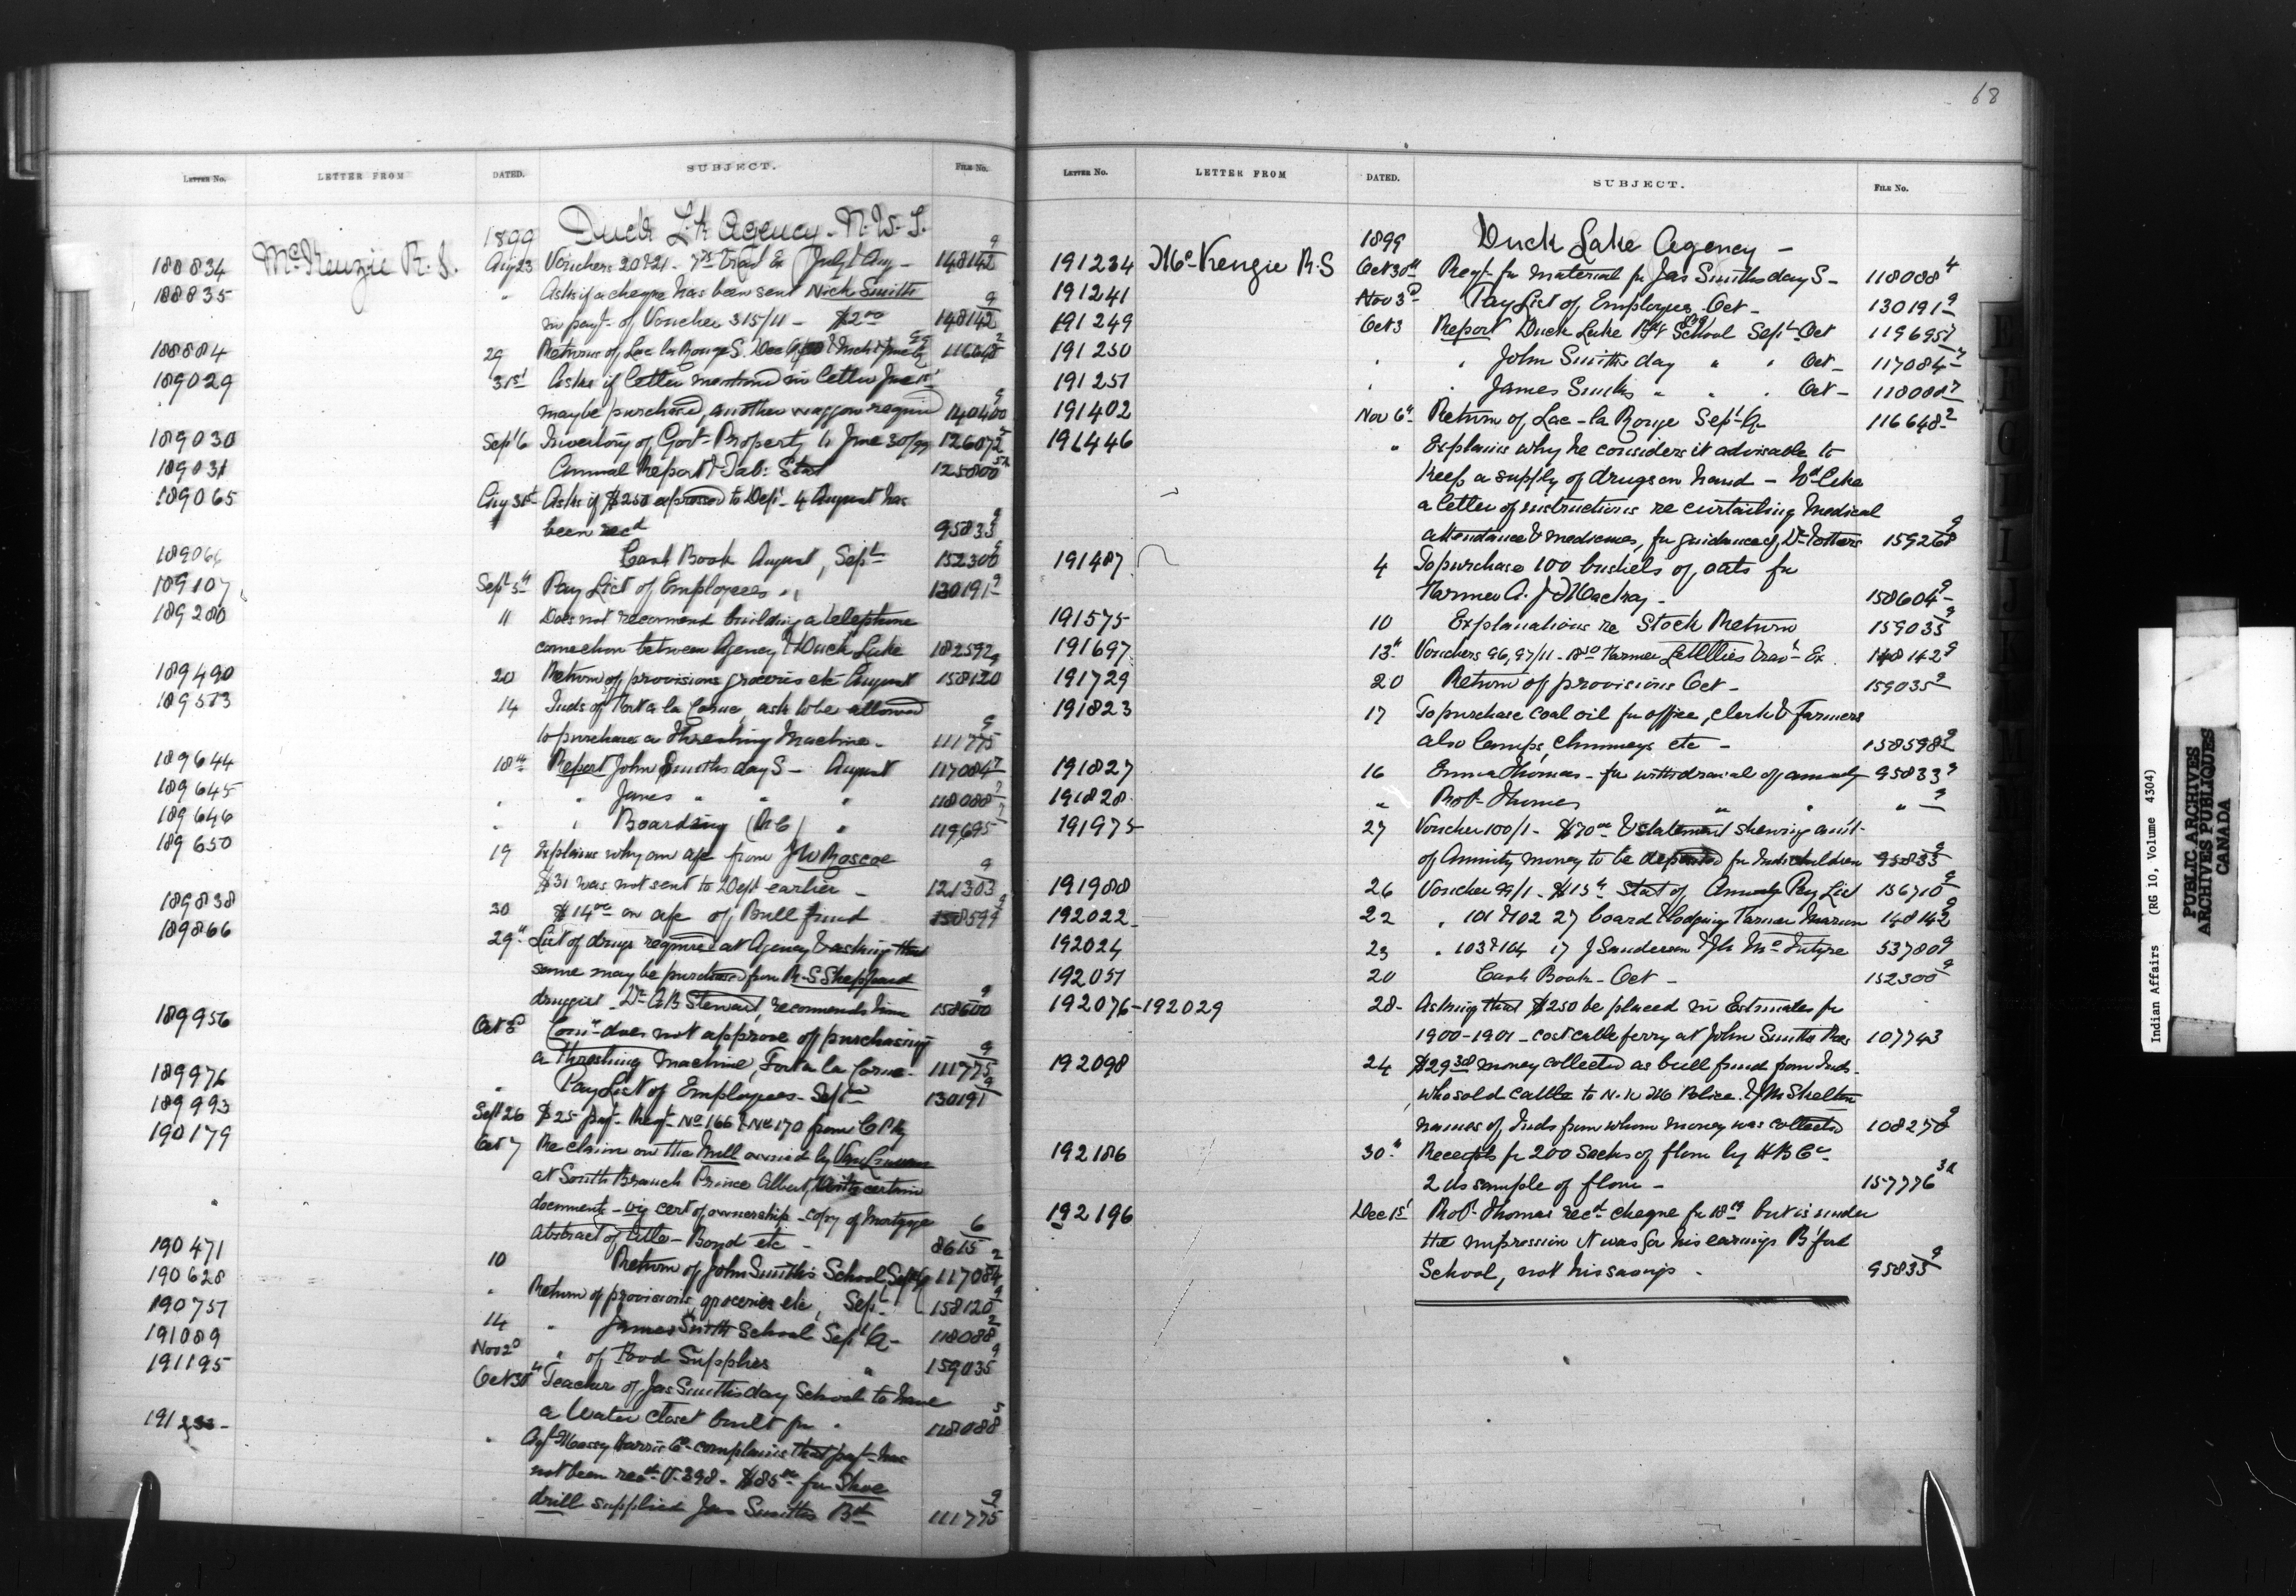 68
LETTER No. LETTER FROM DATED. SUBJECT. FILE No.
1899 Duck Lk Agency - N.W.T.
188834 McKenzie R.S. Aug 23 Vouchers 20 & 21 - Trav Ex July & Aug - 148142 9
188835 " Asks if a cheque has been sent Nick Smith
in payt of Voucher 315/11 - $2.00 148142 9
188884 29 Returns of Lac la Ronge S. Dec
189029 31st Asks if letter mentioned in letter June 15t
may be purchased, another waggon required 140400 9
189030 Sept 6 Inventory of Govt Property to June 30/99 126072
189031 Annual Report & Tab: Stat 125800
189065 Aug 31st Asks if $250 expressed to Dept 4 August has
been recd 95833 9
189066 Cash Book August, Sept 152300 9
189107 Sept 5th Pay List of Employees " 130191 9
189280 11 Does not recommend building a telephone
connection between Agency & Duck Lake 182592
189490 20 Return of provisions groceries etc August 158120 9
189513 14 Inds of Fort a la Corne, ask to be allowed
to purchase a Threshing Machine - 111775 9
189644 18th Report John Smiths day S - August 117084
189645 " " James " " " 118088
189646 " " Boarding (R.C) " 119695
189650 19 Explains why on a/c from J W Roscoe
$31 was not sent to Dept earlier - 121303 9
189838 30 $14.00 on a/c of Bull fund 158599 9
189866 29th List of drugs required at Agency & asking that
same may be purchased from R.S Sheppard
druggist - Dr A.B Stewart, recommends him 158600 9
189956 Oct 3d Comr does not approve of purchasing
a threshing machine, Fort a la Corne - 111775 9
189976 " Pay List of Employees - Sept 130191 9
189993 Sept 26 $25 payt Reqt No 166 & No 170 from C P Ry
190179 Oct 7 Re claim on the Mill owned by
at South Branch Prince Albert, certain
documents - viz cert of ownership - copy of Mortgage
Abstract of title - Bond etc - 8615 6
190471 10 Return of John Smith's School Sept Q 117084 2
190628 " Return of provisions groceries etc, Sept 158120 9
190751 14 " James Smith School Sept Q - 118088 2
191089 Nov 2d " of Food Supplies " 159035 9
191195 Oct 30th Teacher of Jas Smiths day School to have
a Water Closet built for 118088 5
" Agt Massey Harris Co - complains that payt has
not been recd V. 398 - $85.00 for Shoe
drill supplied Jas Smiths Bd 111775 9
LETTER No. LETTER FROM DATED. SUBJECT. FILE No.
1899 Duck Lake Agency -
191234 McKenzie R.S Oct 30th Reqt for material for Jas Smiths day S - 118088 4
191241 Nov 3d Pay List of Employees Oct - 130191 9
191249 Oct 3 Report Duck Lake School Sept - Oct 119695
191250 " " John Smiths day " " Oct - 117084
191251 " " James Smiths " " Oct - 118088
191402 Nov 6th Return of Lac-la Ronge Sept Q - 116648 2
191446 " Explains why he considers it advisable to
keep a supply of drugs on hand - Wd like
a letter of instructions re curtailing medical
attendance & medicines, for guidance of Dr 159268 9
191487 4 To purchase 100 bushels of oats for
Farmer A. J McKay - 158604 9
191575 10 Explanations re Stock Return 159035 9
191697 13th Vouchers 96, 97/11 - Farmer Trav Ex 148142 9
191729 20 Return of provisions Oct - 159035 9
191823 17 To purchase coal oil for office, clerk & farmers
also lamps, chimneys etc - 158598 9
191827 16 Emma Thomas - for withdrawal of annuity 95833 9
191828 " Robt Thomas " " " 9
191975 27 Voucher 100/1 - $70.00 & statement shewing amt
of Annuity money to be deposited for Inds children 95833 9
191988 26 Voucher 99/1 - $15 Stat of Annuity Pay List 156710 9
192022 22 " 101 & 102 27 board & lodging Farmer Marion 148142 9
192024 23 " 103 & 104 17 J Sanderson & Jn McIntyre 53780 9
192051 20 Cash Book - Oct - 152300 9
192076-192029 28 - Asking that $250 be placed in Estimates for
1900-1901 - cost cable ferry at John Smiths Res 107743
192098 24 $29.38 money collected as bull fund from Inds -
who sold cattle to N.W M Police & J M Skelton
names of Inds from whom money was collected 108278 9
192186 30th Receipts for 200 Sacks of flour by H B Co -
2 lbs sample of flour - 157776
192196 Dec 1st Robt Thomas recd cheque for but is under
the impression it was for his earnings B'ford
School, not his savings - 95833 9
Indian Affairs (RG 10, Volume 4304)
PUBLIC ARCHIVES
ARCHIVES PUBLIQUES
CANADA